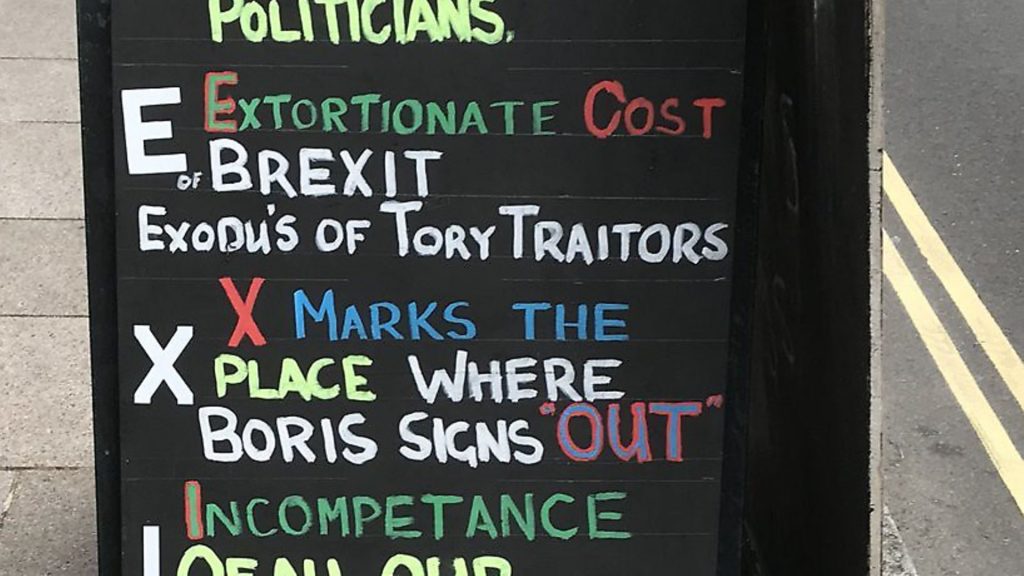 POLITICIANS.
E EXTORTIONATE COST
OF BREXIT
EXODU'S OF TORY TRAITORS
X MARKS THE
X PLACE WHERE
BORIS SIGNS "OUT"
INCOMPETANCE
I OF ALL OUR